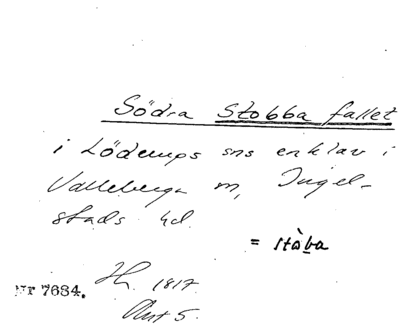 Södra Stobba fallet
i Löderups sns enklav i
Valleberga m, Ingel-
stads hd.
= stòba
Nr 7684. H. 1817
Akt 5.